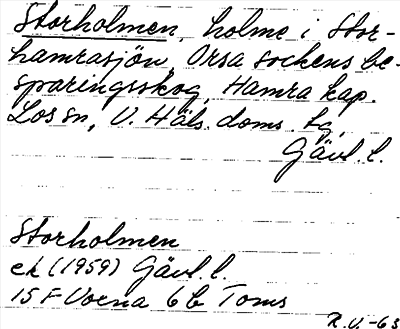 Storholmen, holme i Stor-
hamrasjön, Orsa sockens be-
sparingsskog, Hamra kap.
Los sn, V. Häls. doms. sg,
Gävl. l.
Storholmen
ek (1959) Gävl. l.
15 F Voxna 6 b Toms
R.V.-63